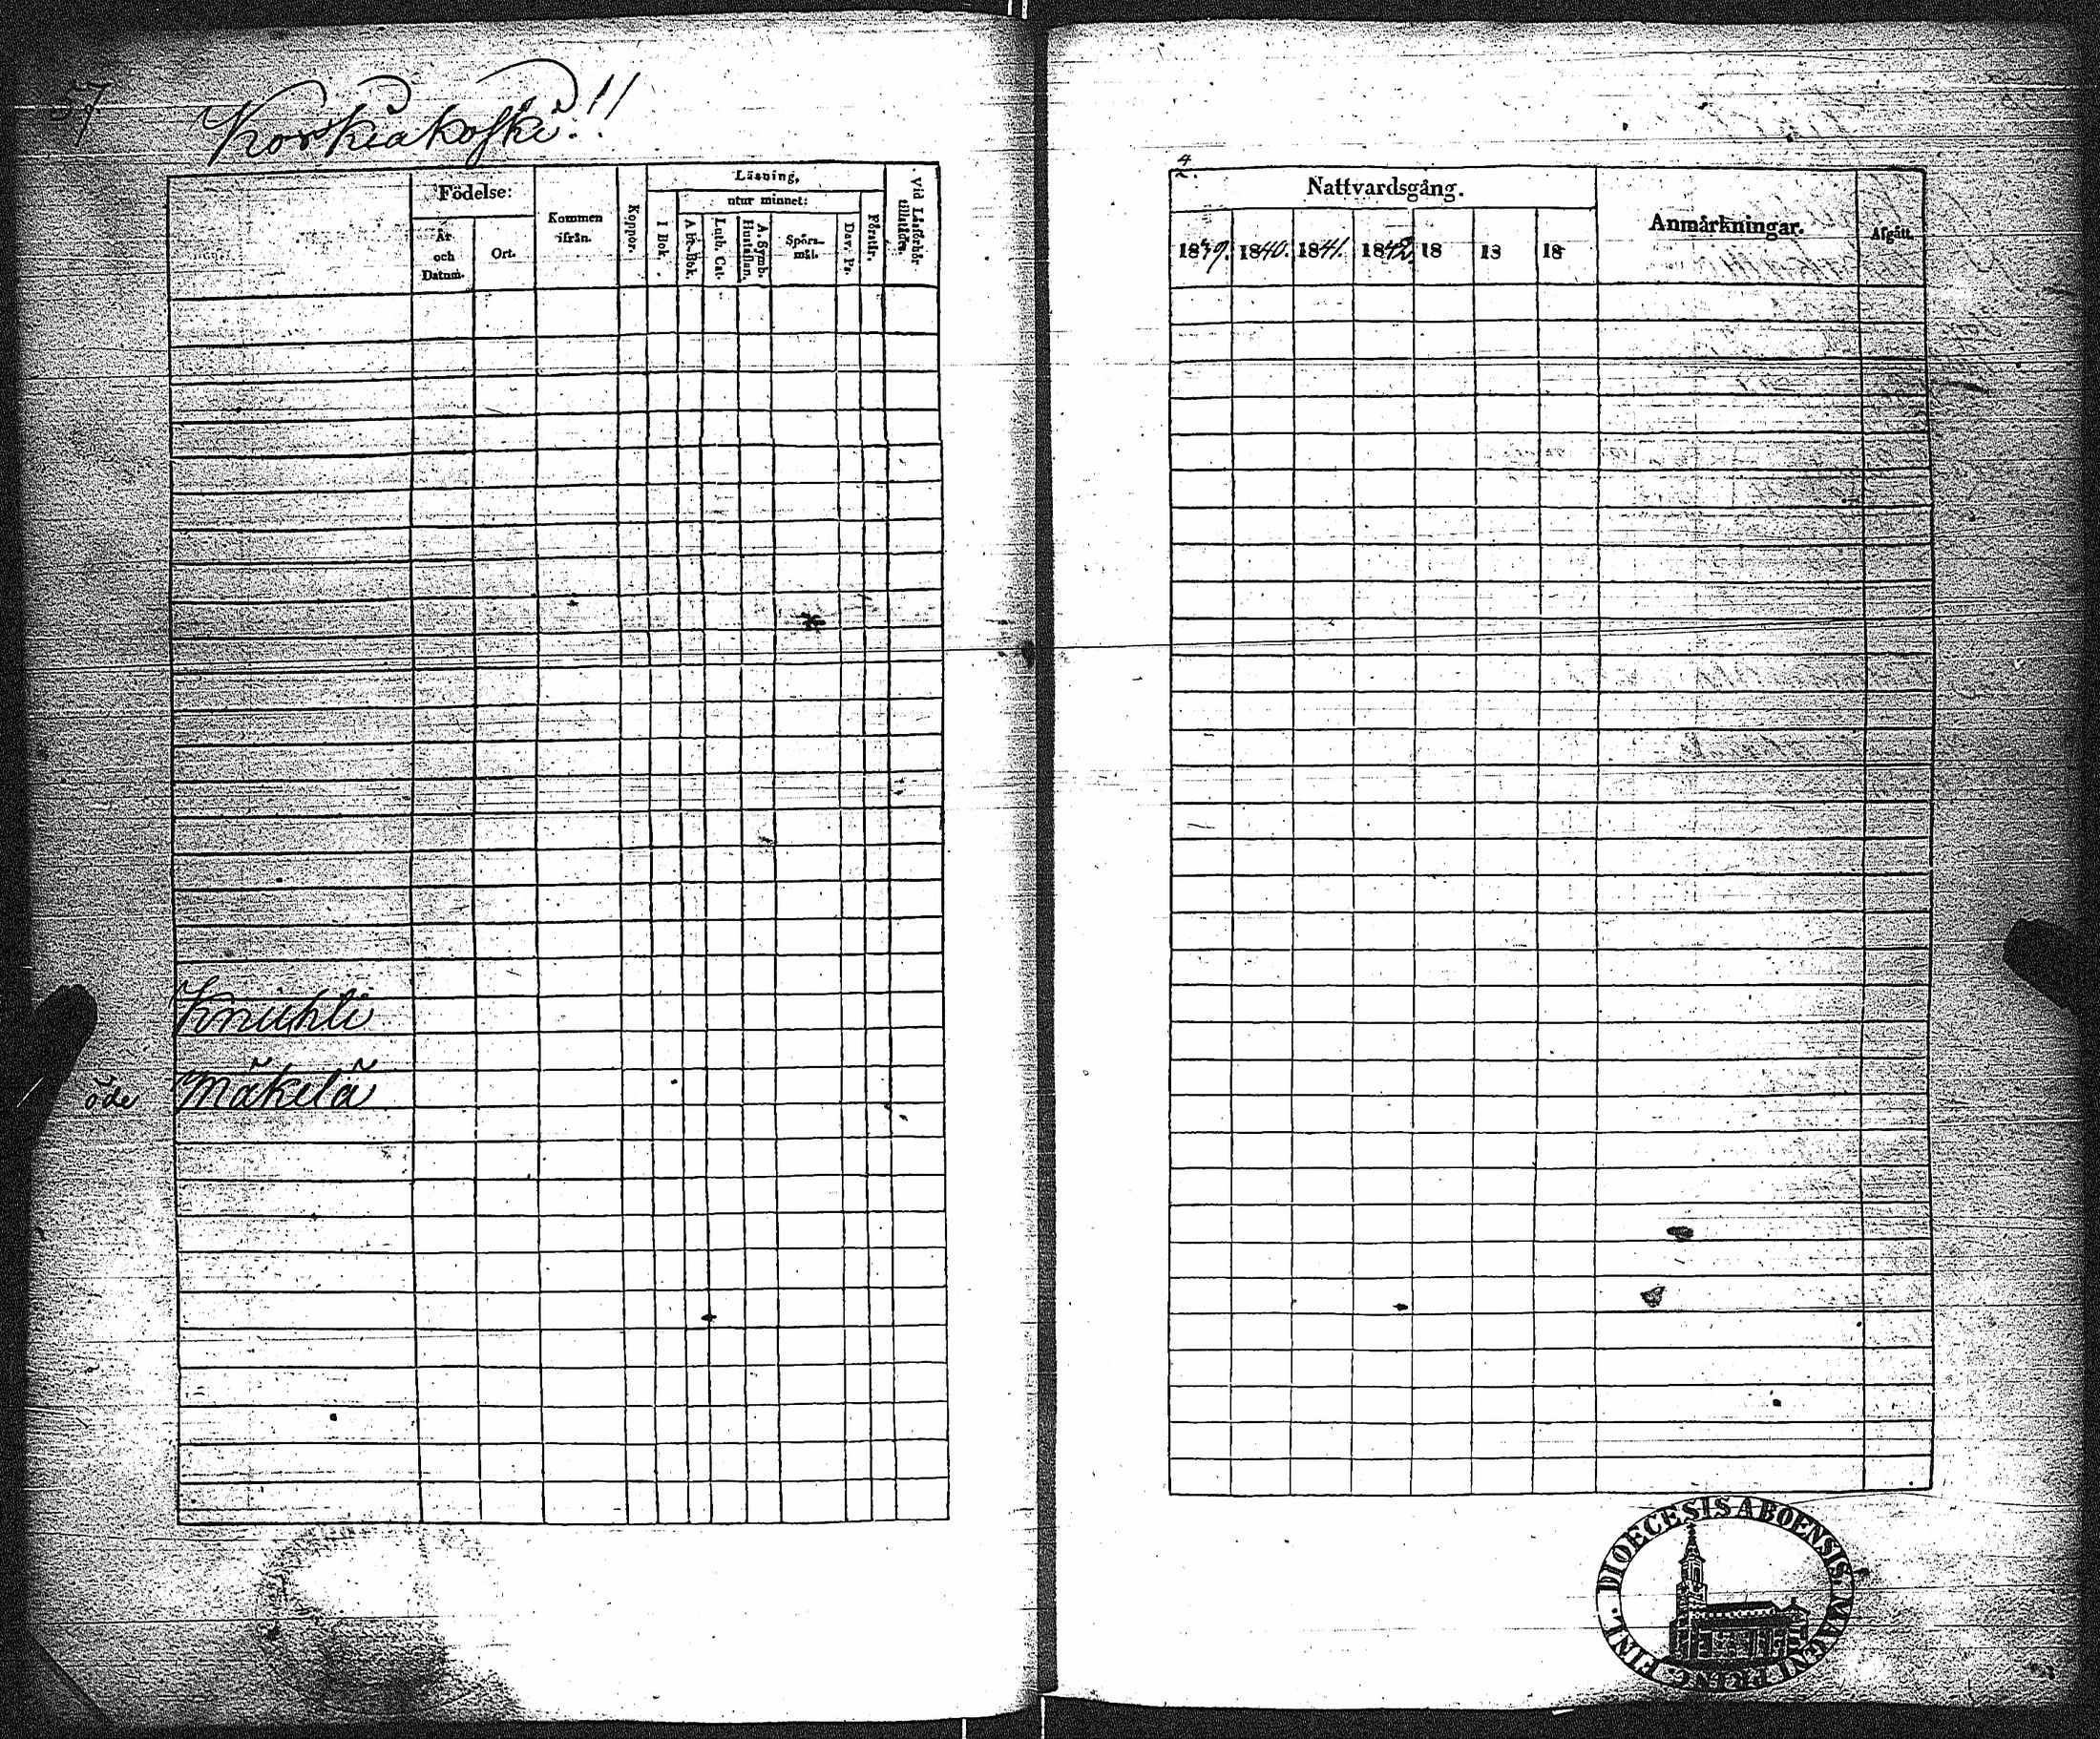 57
Korkiakoski!!
Födelse:
År och Datum.
Ort.
Kommen ifrån.
Koppor.
Läsning,
utur minnet:
I Bok.
A be-Bok.
Luth. Cat.
A. Symb. Hustaflan.
Spörs-mål.
Dav. Ps.
Förstår.
Vid Läsförhör tillstädes.
Knuhli
öde Mäkelä
4
2.
Nattvardsgång.
Anmärkningar.
Afgått.
1839. 1840. 1841. 1842. 18 18 18
DIOECESIS ABOENSIS MAGNI PRINC. FINL.